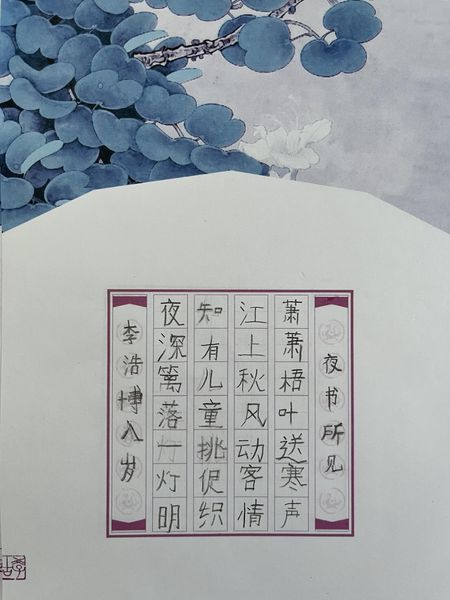 夜书所见
萧萧梧叶送寒声
江上秋风动客情
知有儿童挑促织
夜深篱落一灯明
李浩博八岁